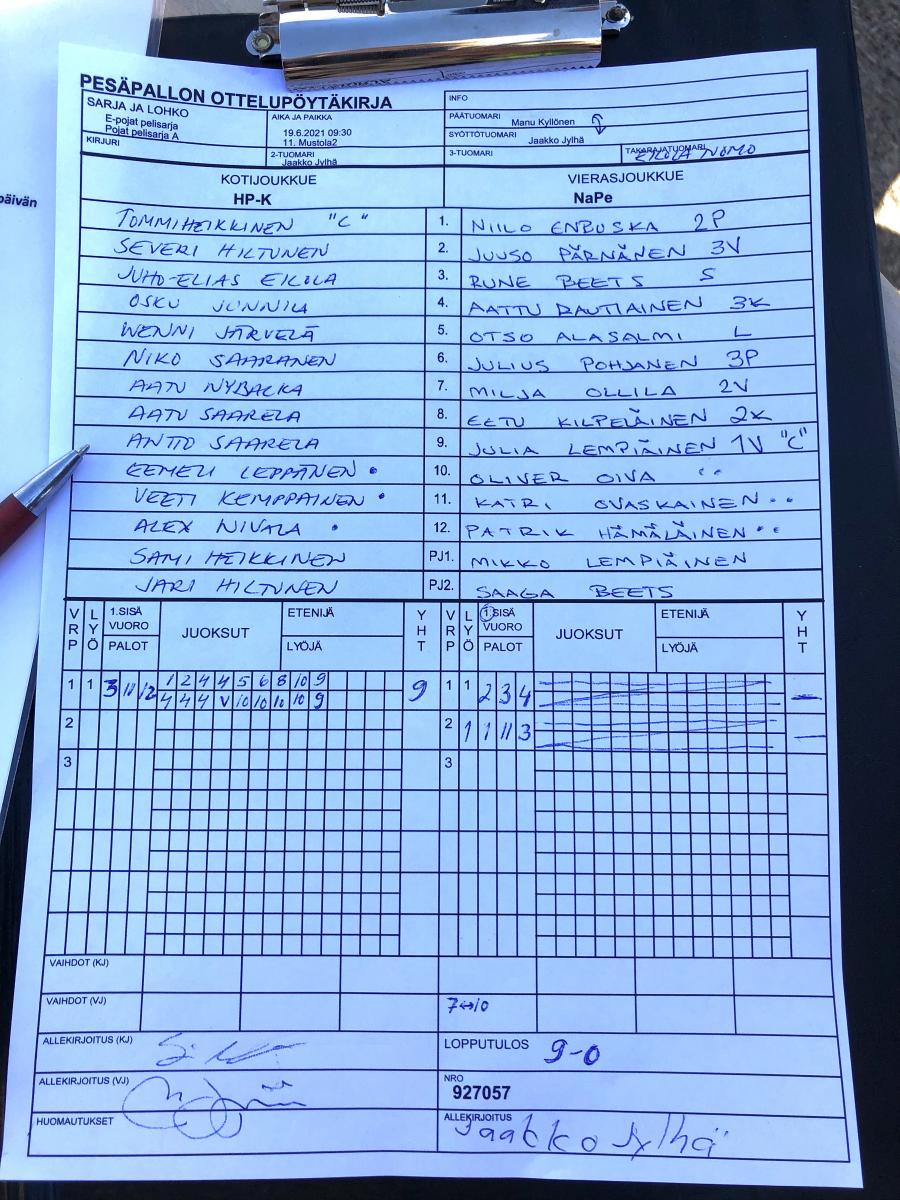 päivän
PESÄPALLON OTTELUPÖYTÄKIRJA
SARJA JA LOHKO
E-pojat pelisarja
Pojat pelisarja A
KIRJURI
AIKA JA PAIKKA
19.6.2021 09:30
11. Mustola2
2-TUOMARI
Jaakko Jylhä
INFO
PÄÄTUOMARI Manu Kyllönen
SYÖTTÖTUOMARI Jaakko Jylhä
3-TUOMARI
TAKARAJATUOMARI
KOTIJOUKKUE
HP-K
VIERASJOUKKUE
NaPe
TOMMI HEIKKINEN "C" 1. NIILO ENBUSKA 2P
SEVERI HILTUNEN 2. JUUSO PÄRNÄNEN 3V
JUHO-ELIAS EKOLA 3. RUNE BEETS S
OSKU JUNNILA 4. AATTU RAUTIAINEN 3K
WENNI JÄRVELÄ 5. OTSO ALASALMI L
NIKO SAARANEN 6. JULIUS POHJANEN 3P
AATU NYBACKA 7. MILJA OLLILA 2V
AATU SAARELA 8. EETU KILPELÄINEN 2K
ANTTO SAARELA 9. JULIA LEMPIÄINEN 1V "C"
EEMELI LEPPÄNEN • 10. OLIVER OIVA ••
VEETI KEMPPAINEN • 11. KATRI OVASKAINEN ••
ALEX NIVALA • 12. PATRIK HÄMÄLÄINEN ••
SAMI HEIKKINEN PJ1. MIKKO LEMPIÄINEN
JARI HILTUNEN PJ2. SAAGA BEETS
VRP LYÖ 1.SISÄ VUORO PALOT JUOKSUT ETENIJÄ LYÖJÄ YHT VRP LYÖ 1.SISÄ VUORO PALOT JUOKSUT ETENIJÄ LYÖJÄ YHT
1 1 3 11 12 1 2 4 4 5 6 8 10 9 9 1 1 2 3 4 —
4 4 4 V 10 10 10 10 9
2 2 1 1 11 3 —
3 3
VAIHDOT (KJ)
VAIHDOT (VJ) 7↔10
ALLEKIRJOITUS (KJ) LOPPUTULOS 9-0
ALLEKIRJOITUS (VJ) NRO
927057
HUOMAUTUKSET ALLEKIRJOITUS
Jaakko Jylhä